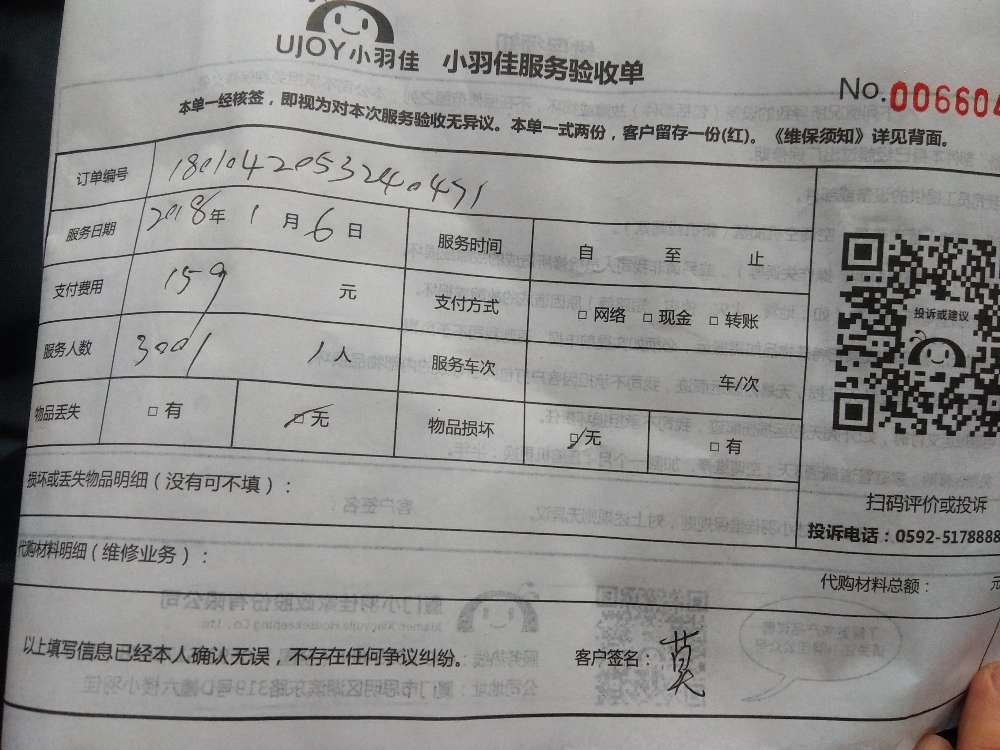 UJOY小羽佳 小羽佳服务验收单
No.006604
本单一经核签，即视为对本次服务验收无异议。本单一式两份，客户留存一份(红)。《维保须知》详见背面。
订单编号 1801042053240471
服务日期 2018年 1月 6日 服务时间 自 至 止
支付费用 159 元 支付方式 □ 网络 □ 现金 □ 转账
投诉或建议
服务人数 3001 1人 服务车次 车/次
物品丢失 □ 有 □ 无 物品损坏 □ 无 □ 有
损坏或丢失物品明细（没有可不填）：
扫码评价或投诉
投诉电话：0592-5178888
代购材料明细（维修业务）：
代购材料总额： 元
以上填写信息已经本人确认无误，不存在任何争议纠纷。 客户签名：莫